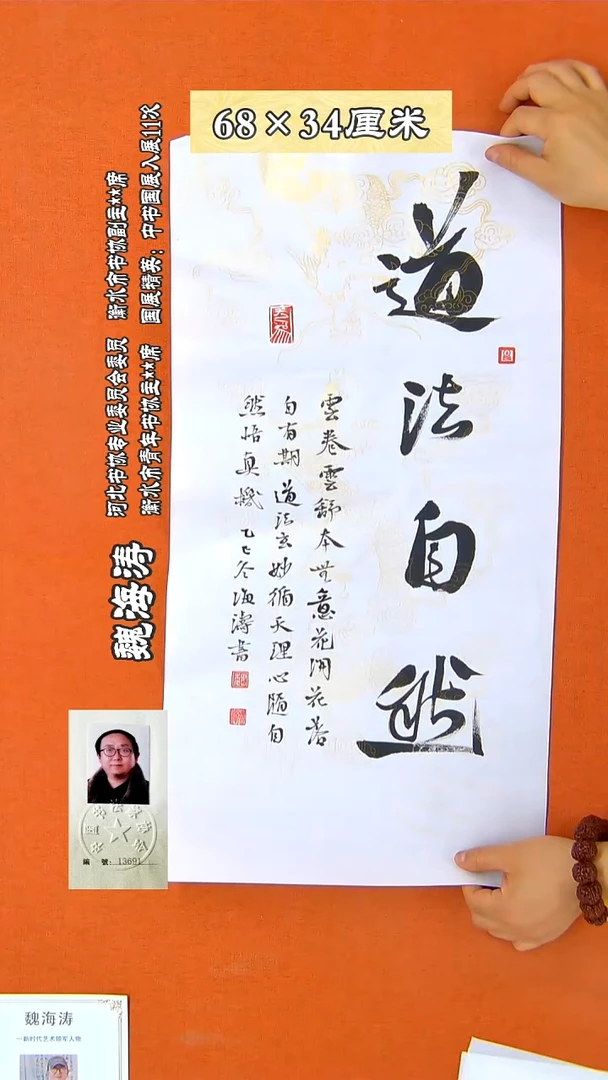 68×34厘米
道法自然
雲卷雲舒本無意花開花落
自有期道法玄妙循天理心隨自
然悟真機乙巳冬海濤書
河北书协专业委员会委员 衡水市书协副主**席
衡水市青年书协主**席 国展精英：中书国展入展11次
魏海涛
编 號：13691
魏海涛
—新时代艺术领军人物